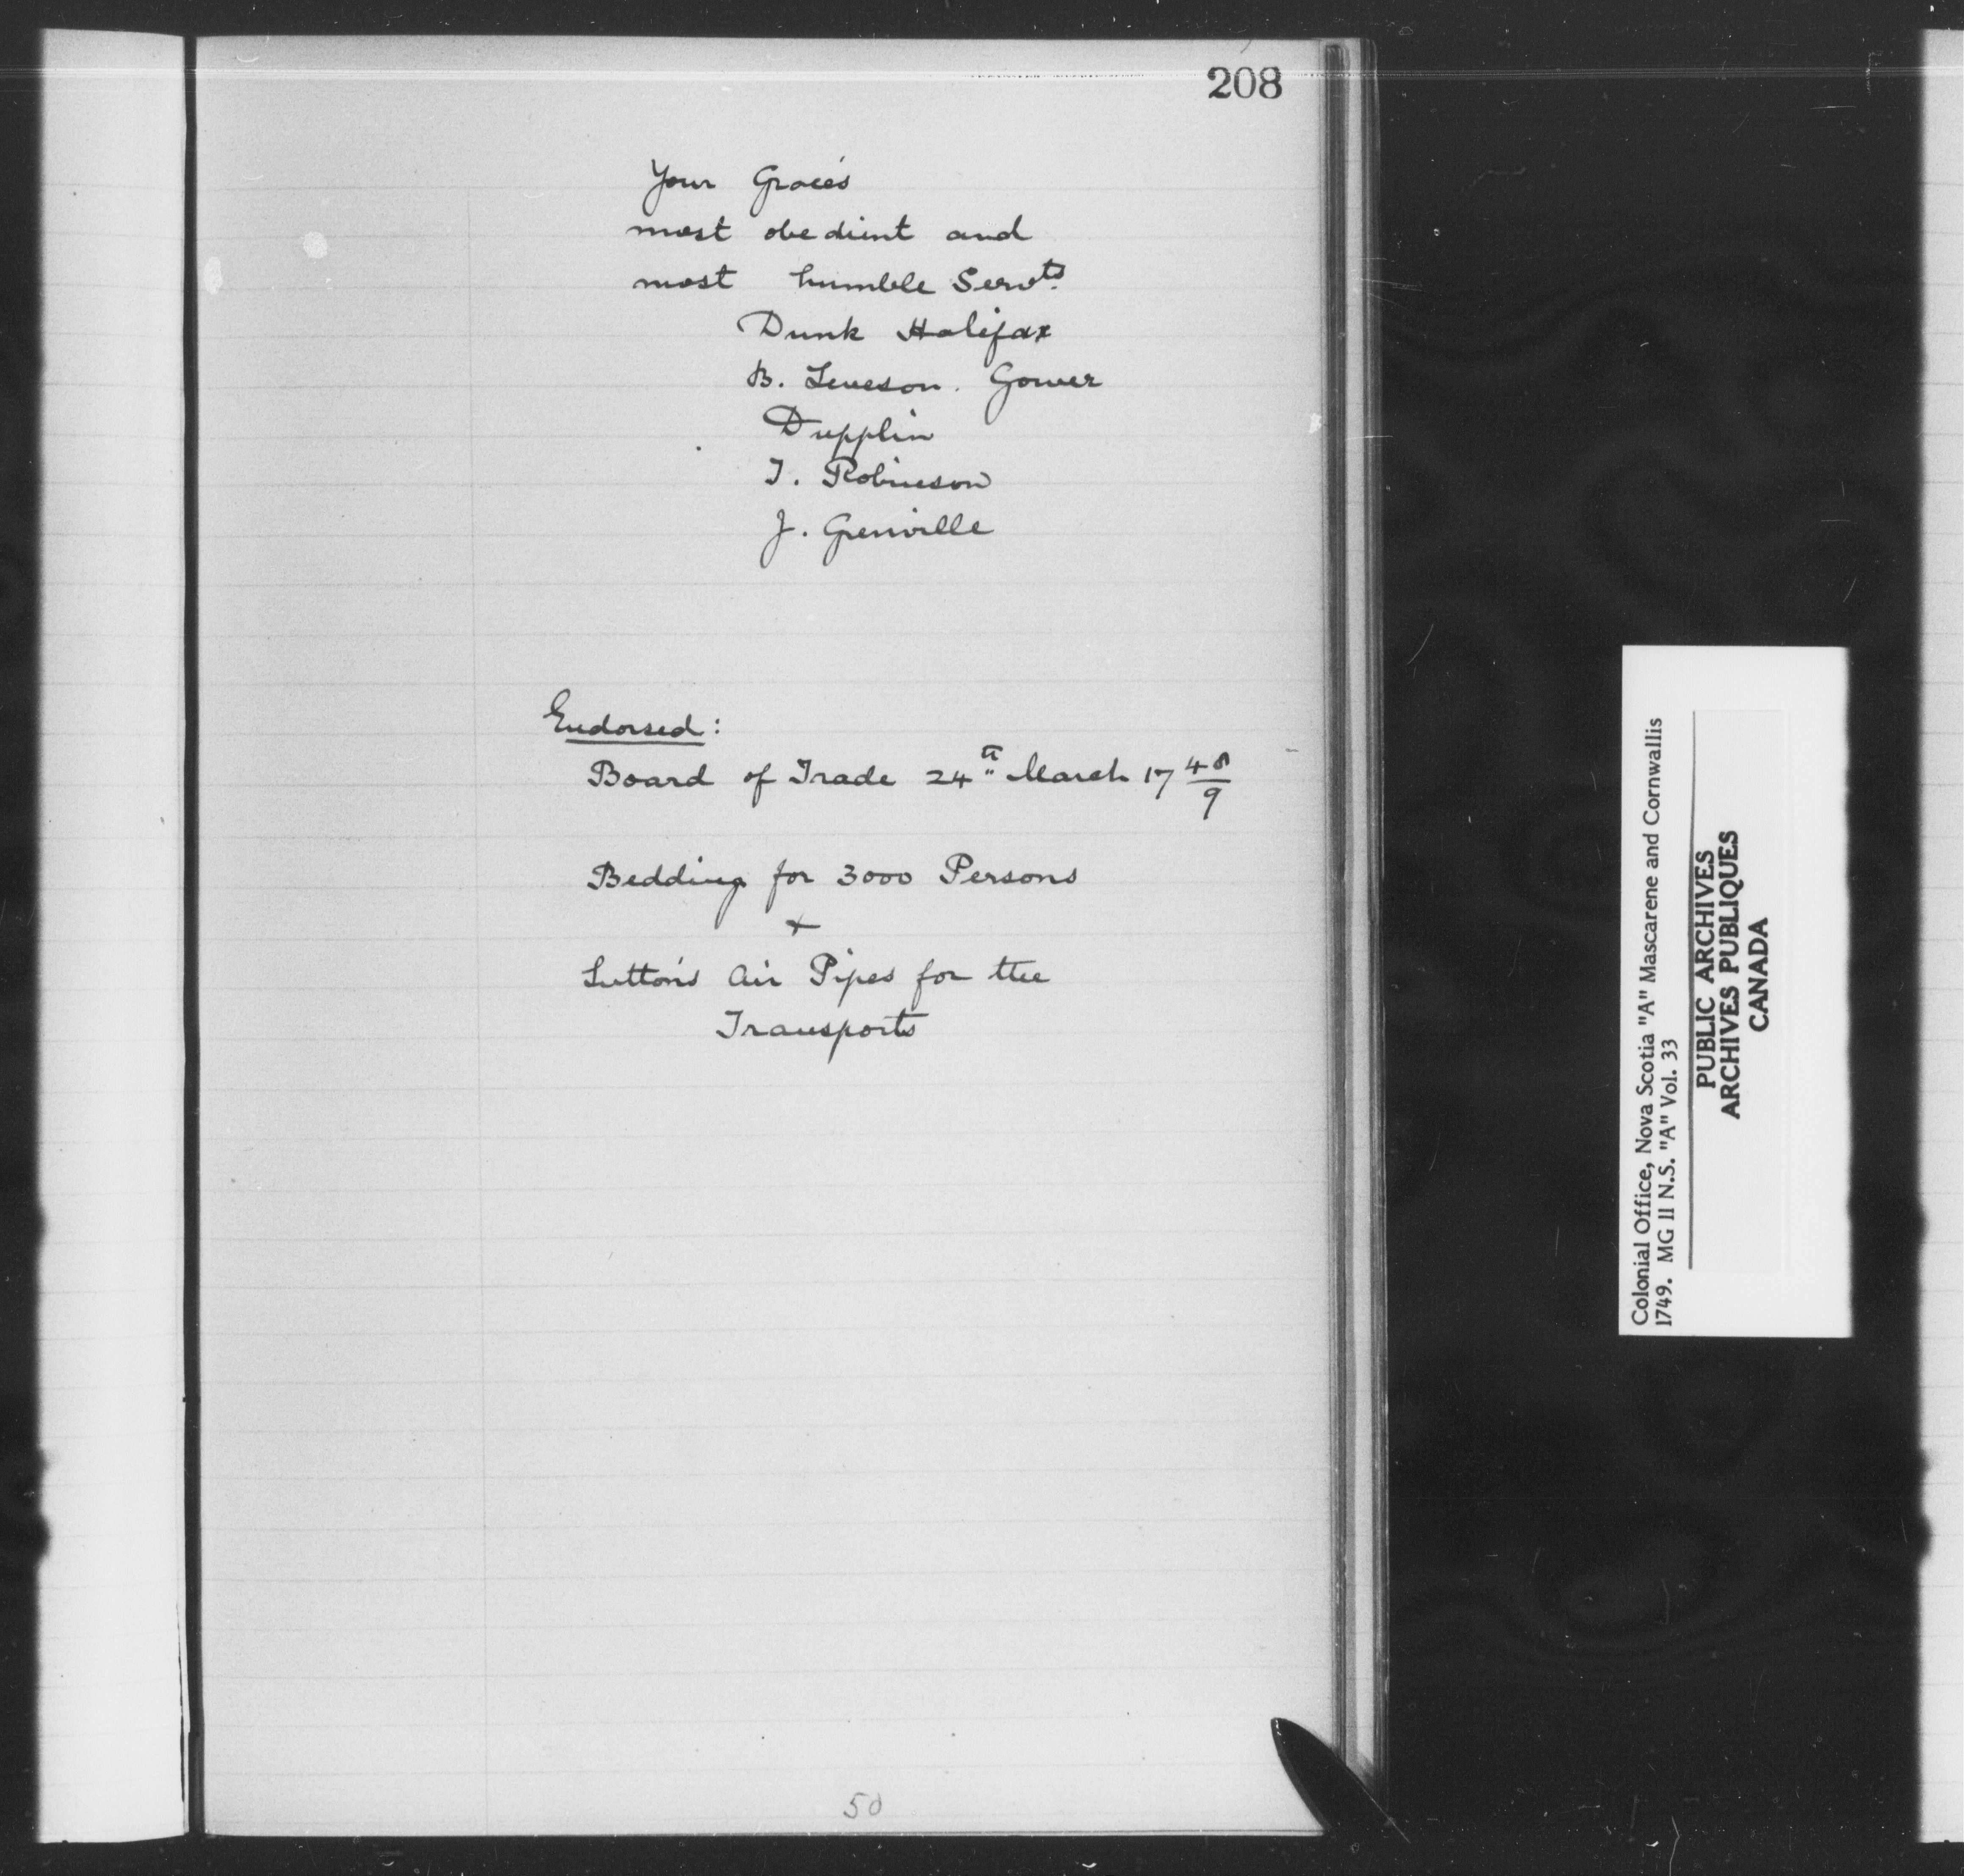 208
Your Grace's
most obedient and
most humble Servts.
Dunk Halifax
B. Leveson. Gower
Dupplin
T. Robinson
J. Grenville
Endorsed:
Board of Trade 24th March 17 48/9
Bedding for 3000 Persons
+
Sutton's Air Pipes for the
Transports
50
Colonial Office, Nova Scotia "A" Mascarene and Cornwallis
1749. MG 11 N.S. "A" Vol. 33
PUBLIC ARCHIVES
ARCHIVES PUBLIQUES
CANADA